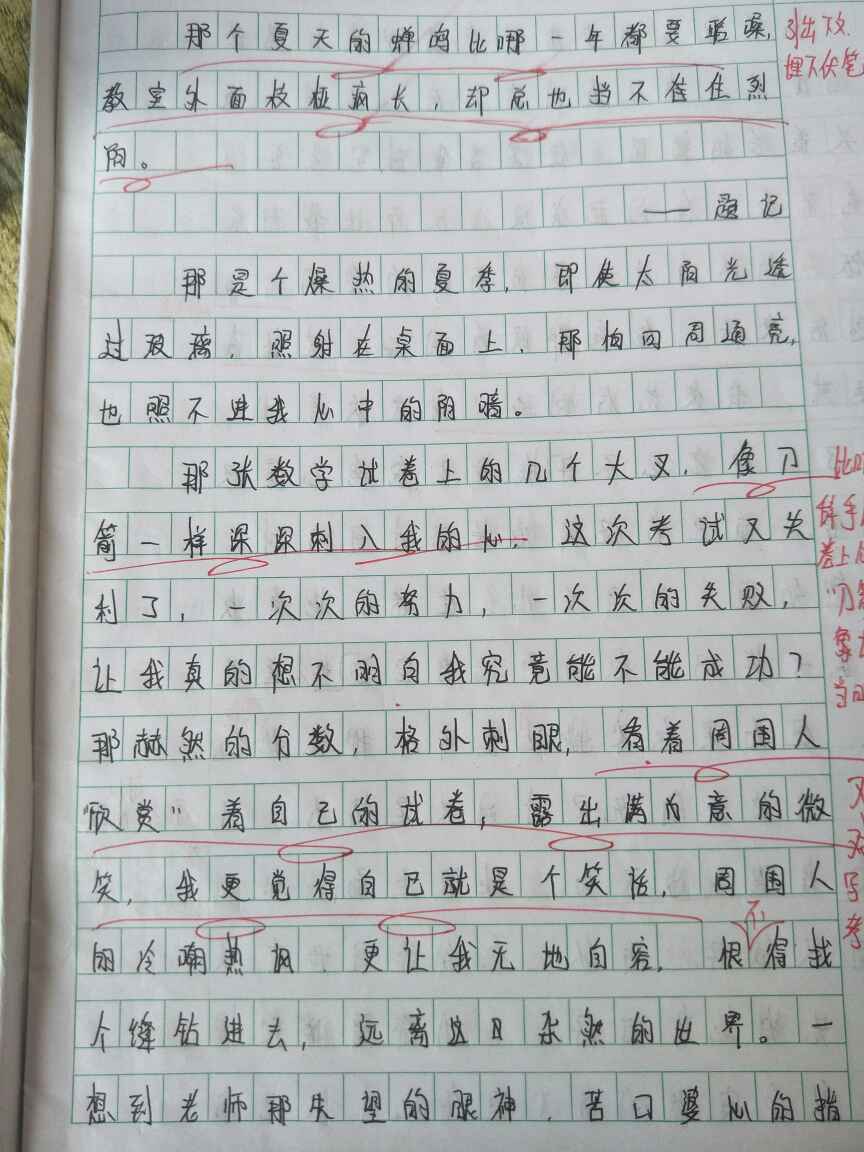 那个夏天的蝉鸣比哪一年都要聒噪,
引出下文.
埋下伏笔
教室外面枝桠疯长,却总也挡不住住烈
阳。
——题记
那是个燥热的夏季,即使太阳光透
过玻璃,照射在桌面上,那怕四周通亮,
也照不进我心中的阴暗。
那张数学试卷上的几个大叉,像刀
箭一样深深刺入我的心,这次考试又失
利了,一次次的努力,一次次的失败,
让我真的想不明白我究竟能不能成功?
那赫然的分数,格外刺眼,看着周围人
"欣赏"着自己的试卷,露出满意的微
笑,我更觉得自己就是个笑话,周围人
不
的冷嘲热讽,更让我无地自容,恨得找
个缝钻进去,远离这日杂熟的世界。一
想到老师那失望的眼神,苦口婆心的指